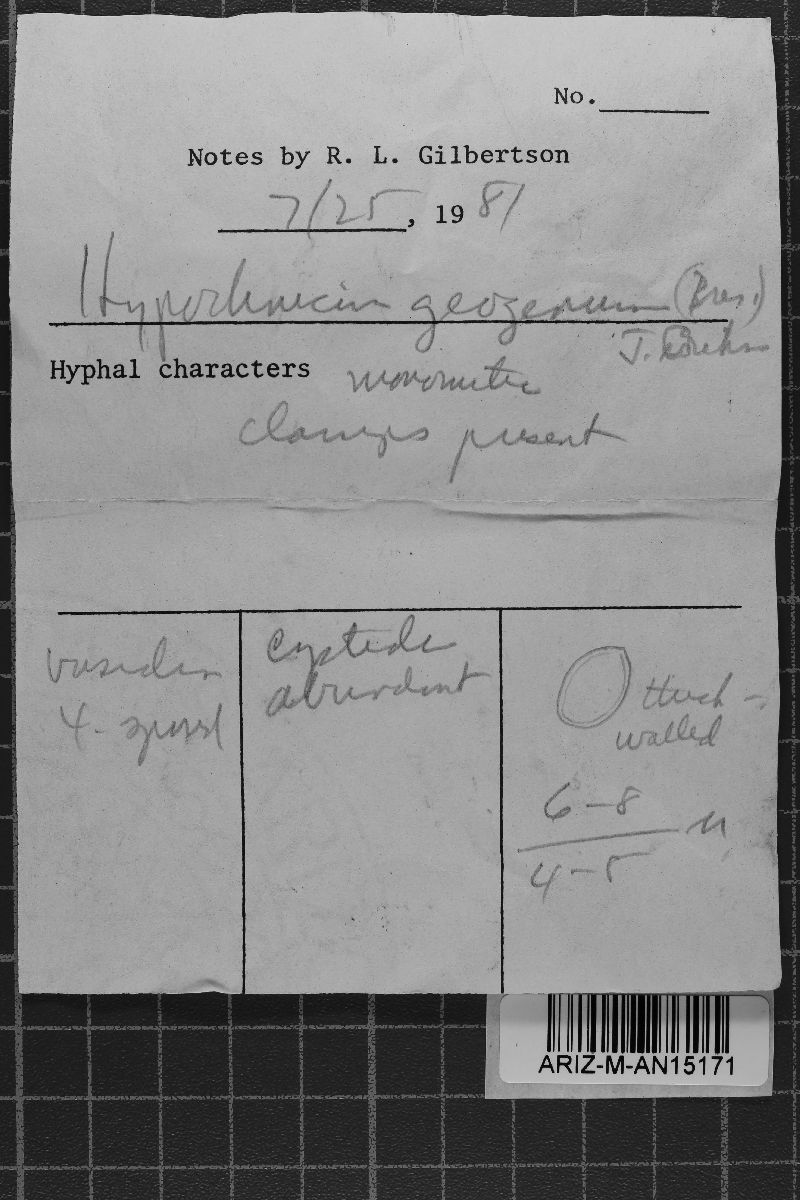 No.
Notes by R. L. Gilbertson
7/25, 1981
Hypochnicium geogenium (Bres.)
J. Erikss
Hyphal characters monomitic
clamps present
basidia
4-spored
cystidia
abundant
thick-
walled
6-8
4-5 μ
ARIZ-M-AN15171